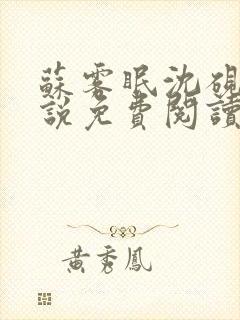 蘇雾眠沈硯
說免費閱讀
黃秀鳳